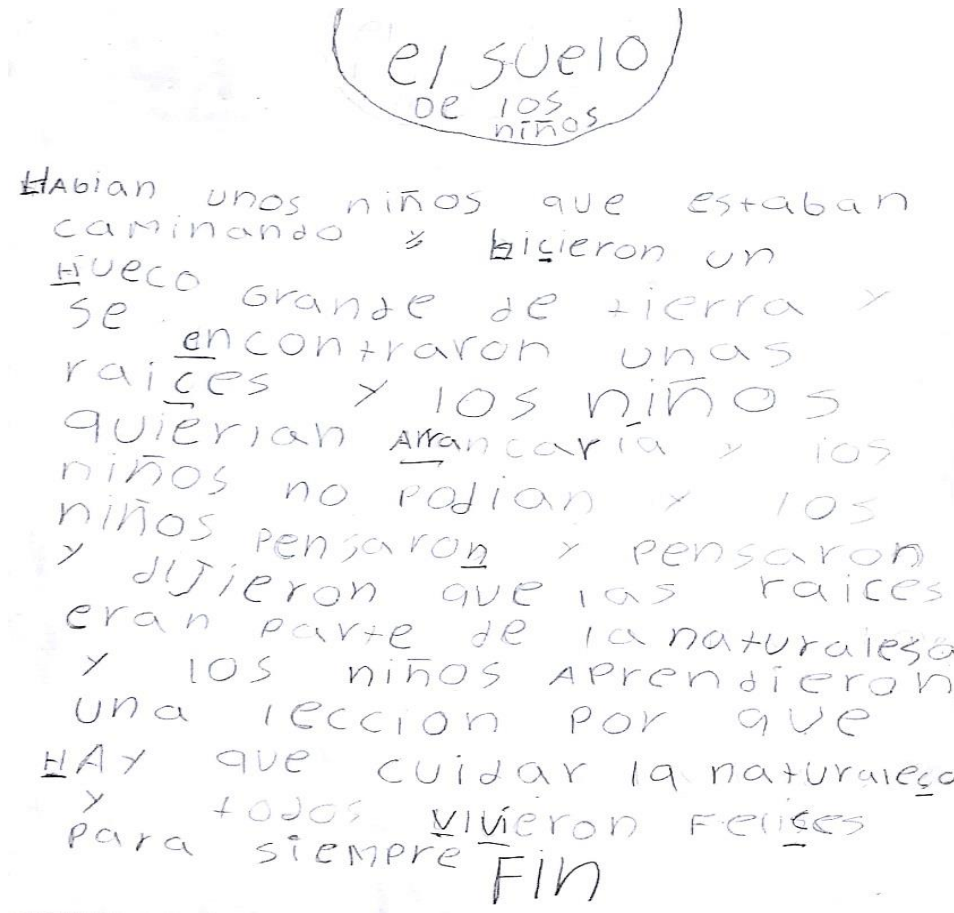 el suelo
DE los
niños
HAbian unos niños que estaban
caminando y hicieron un
Hueco grande de tierra y
se encontraron unas
raices y los niños
quierian Arrancarla y los
niños no podian y los
niños pensaron y pensaron
y dijieron que las raices
eran parte de la naturalesa
y los niños Aprendieron
una leccion por que
HAY que cuidar la naturalesa
y todos vivieron Felices
para siempre FIN